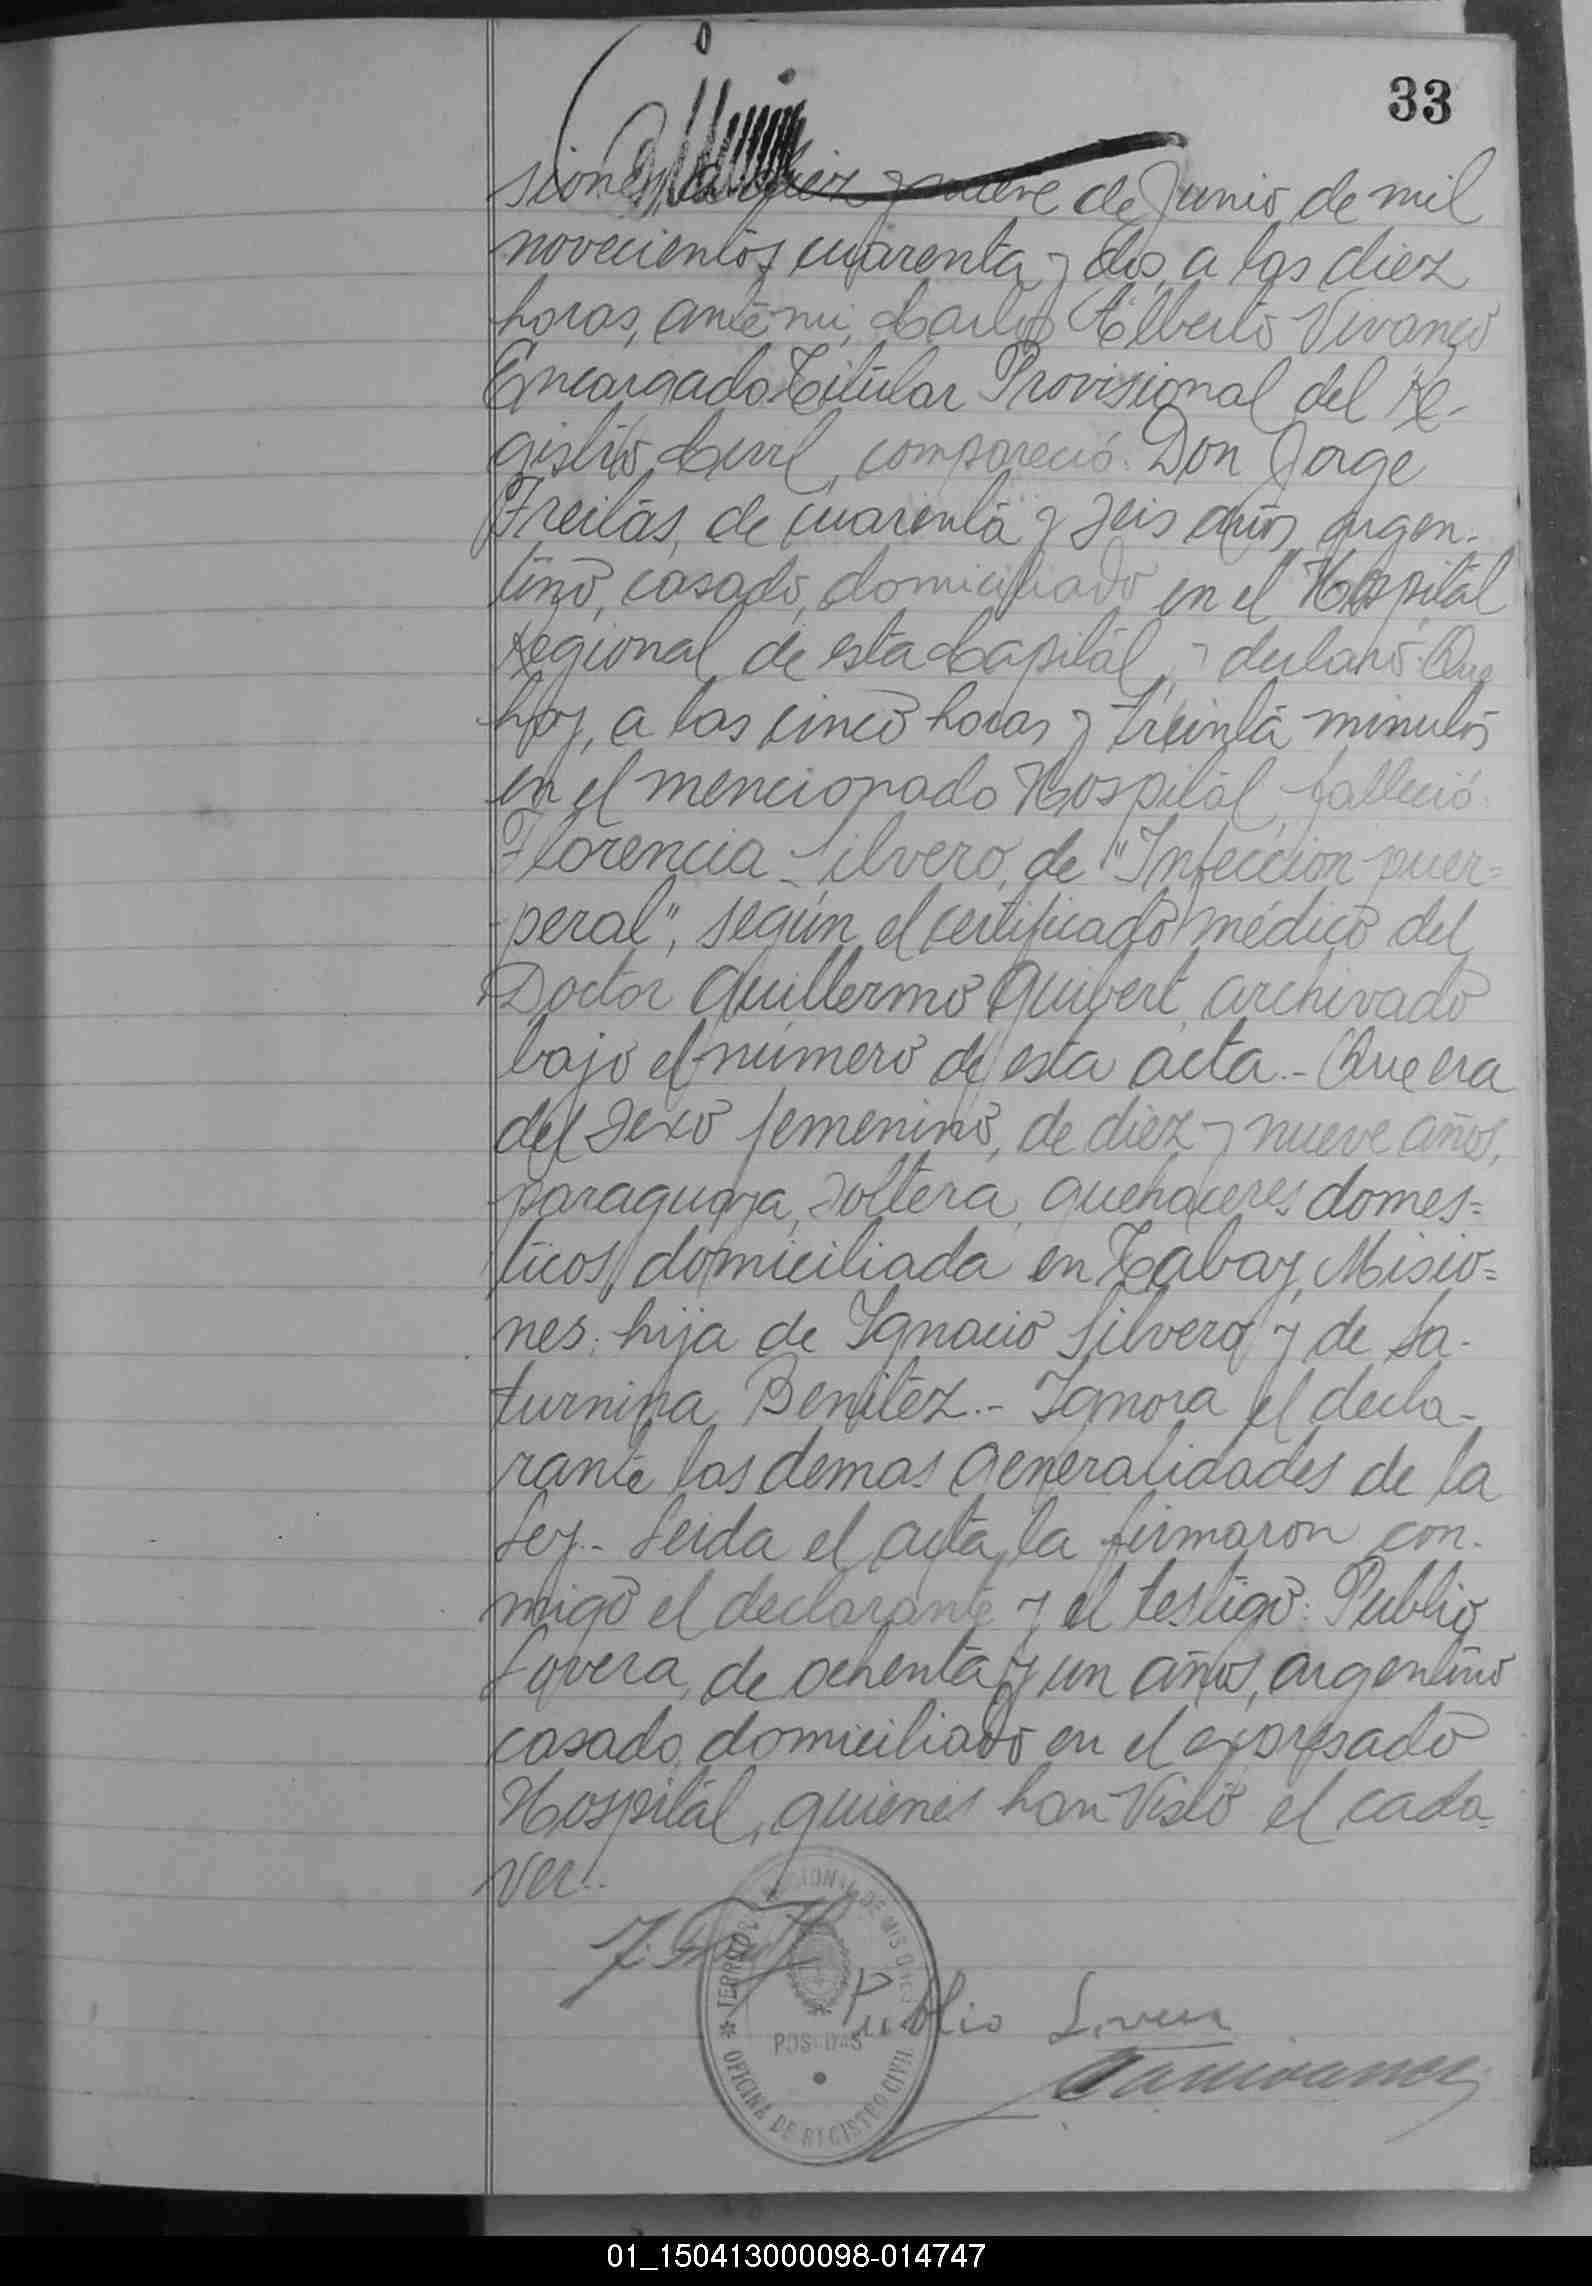 33
siones, a diez y nueve de Junio de mil
novecientos cuarenta y dos, a las diez
horas, ante mi, Carlos Alberto Vivanco
Encargado Titular Provisional del Re-
gistro Civil, compareció: Don Jorge
Freitas, de cuarenta y seis años, argen-
tino, casado, domiciliado en el Hospital
Regional de esta Capital, y declaró: Que
hoy, a las cinco horas y treinta minutos
en el mencionado Hospital, falleció:
Florencia Silvero, de "Infeccion puer=
-peral", según el certificado médico del
Doctor Guillermo Guibert, archivado
bajo el número de esta acta.- Que era
del sexo femenino, de diez y nueve años,
paraguaya, soltera, quehaceres domes=
ticos, domiciliada en Tabay, Misio=
nes; hija de Ignacio Silvero y de Sa-
turnina Benitez.- Ignora el decla-
rante las demas generalidades de la
Ley.- Leida el acta, la firmaron con-
migo el declarante y el testigo: Publio
Lovera, de ochenta y un años, argentino
casado, domiciliado en el expresado
Hospital, quienes han visto el cada-
ver.-
TERRITORIO NACIONAL DE MISIONES
Publio Lovera
POSADAS
OFICINA DE REGISTRO CIVIL
01_150413000098-014747